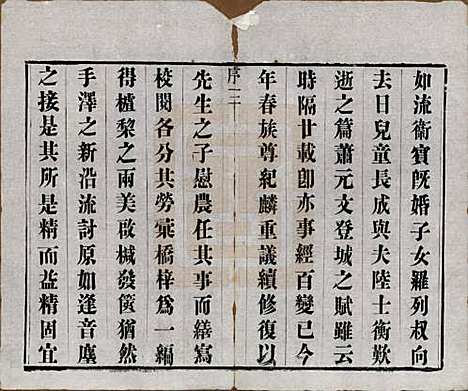 如流衛寶旣婚子女羅列叔向
去日兒童長成與夫陸士衡歎
逝之篇蕭元文登城之賦雖云
時隔廿載卽亦事經百變已今
年春族尊紀麟重議續修復以
序 二
先生之子慰農任其事而繕寫
校閱各分其勞彙橋梓爲一編
得櫨棃之兩美啟椷發篋猶然
手澤之新沿流討原如逢音塵
之接是其所是精而益精固宜